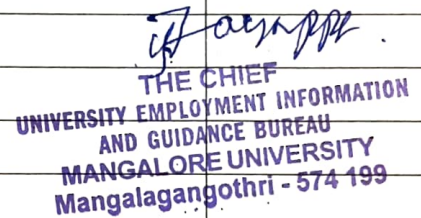 THE CHIEF
UNIVERSITY EMPLOYMENT INFORMATION
AND GUIDANCE BUREAU
MANGALORE UNIVERSITY
Mangalagangothri - 574 199